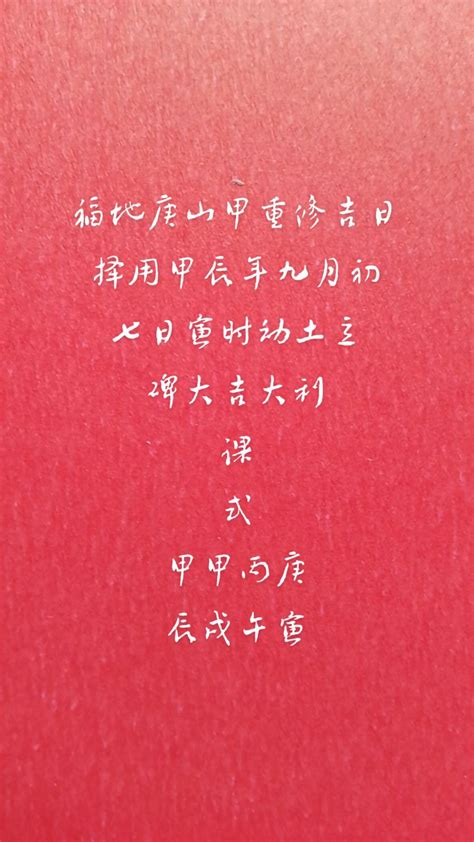 福地庚山甲重修吉日
择用甲辰年九月初
七日寅时动土立
碑大吉大利
课
式
甲甲丙庚
辰戌午寅